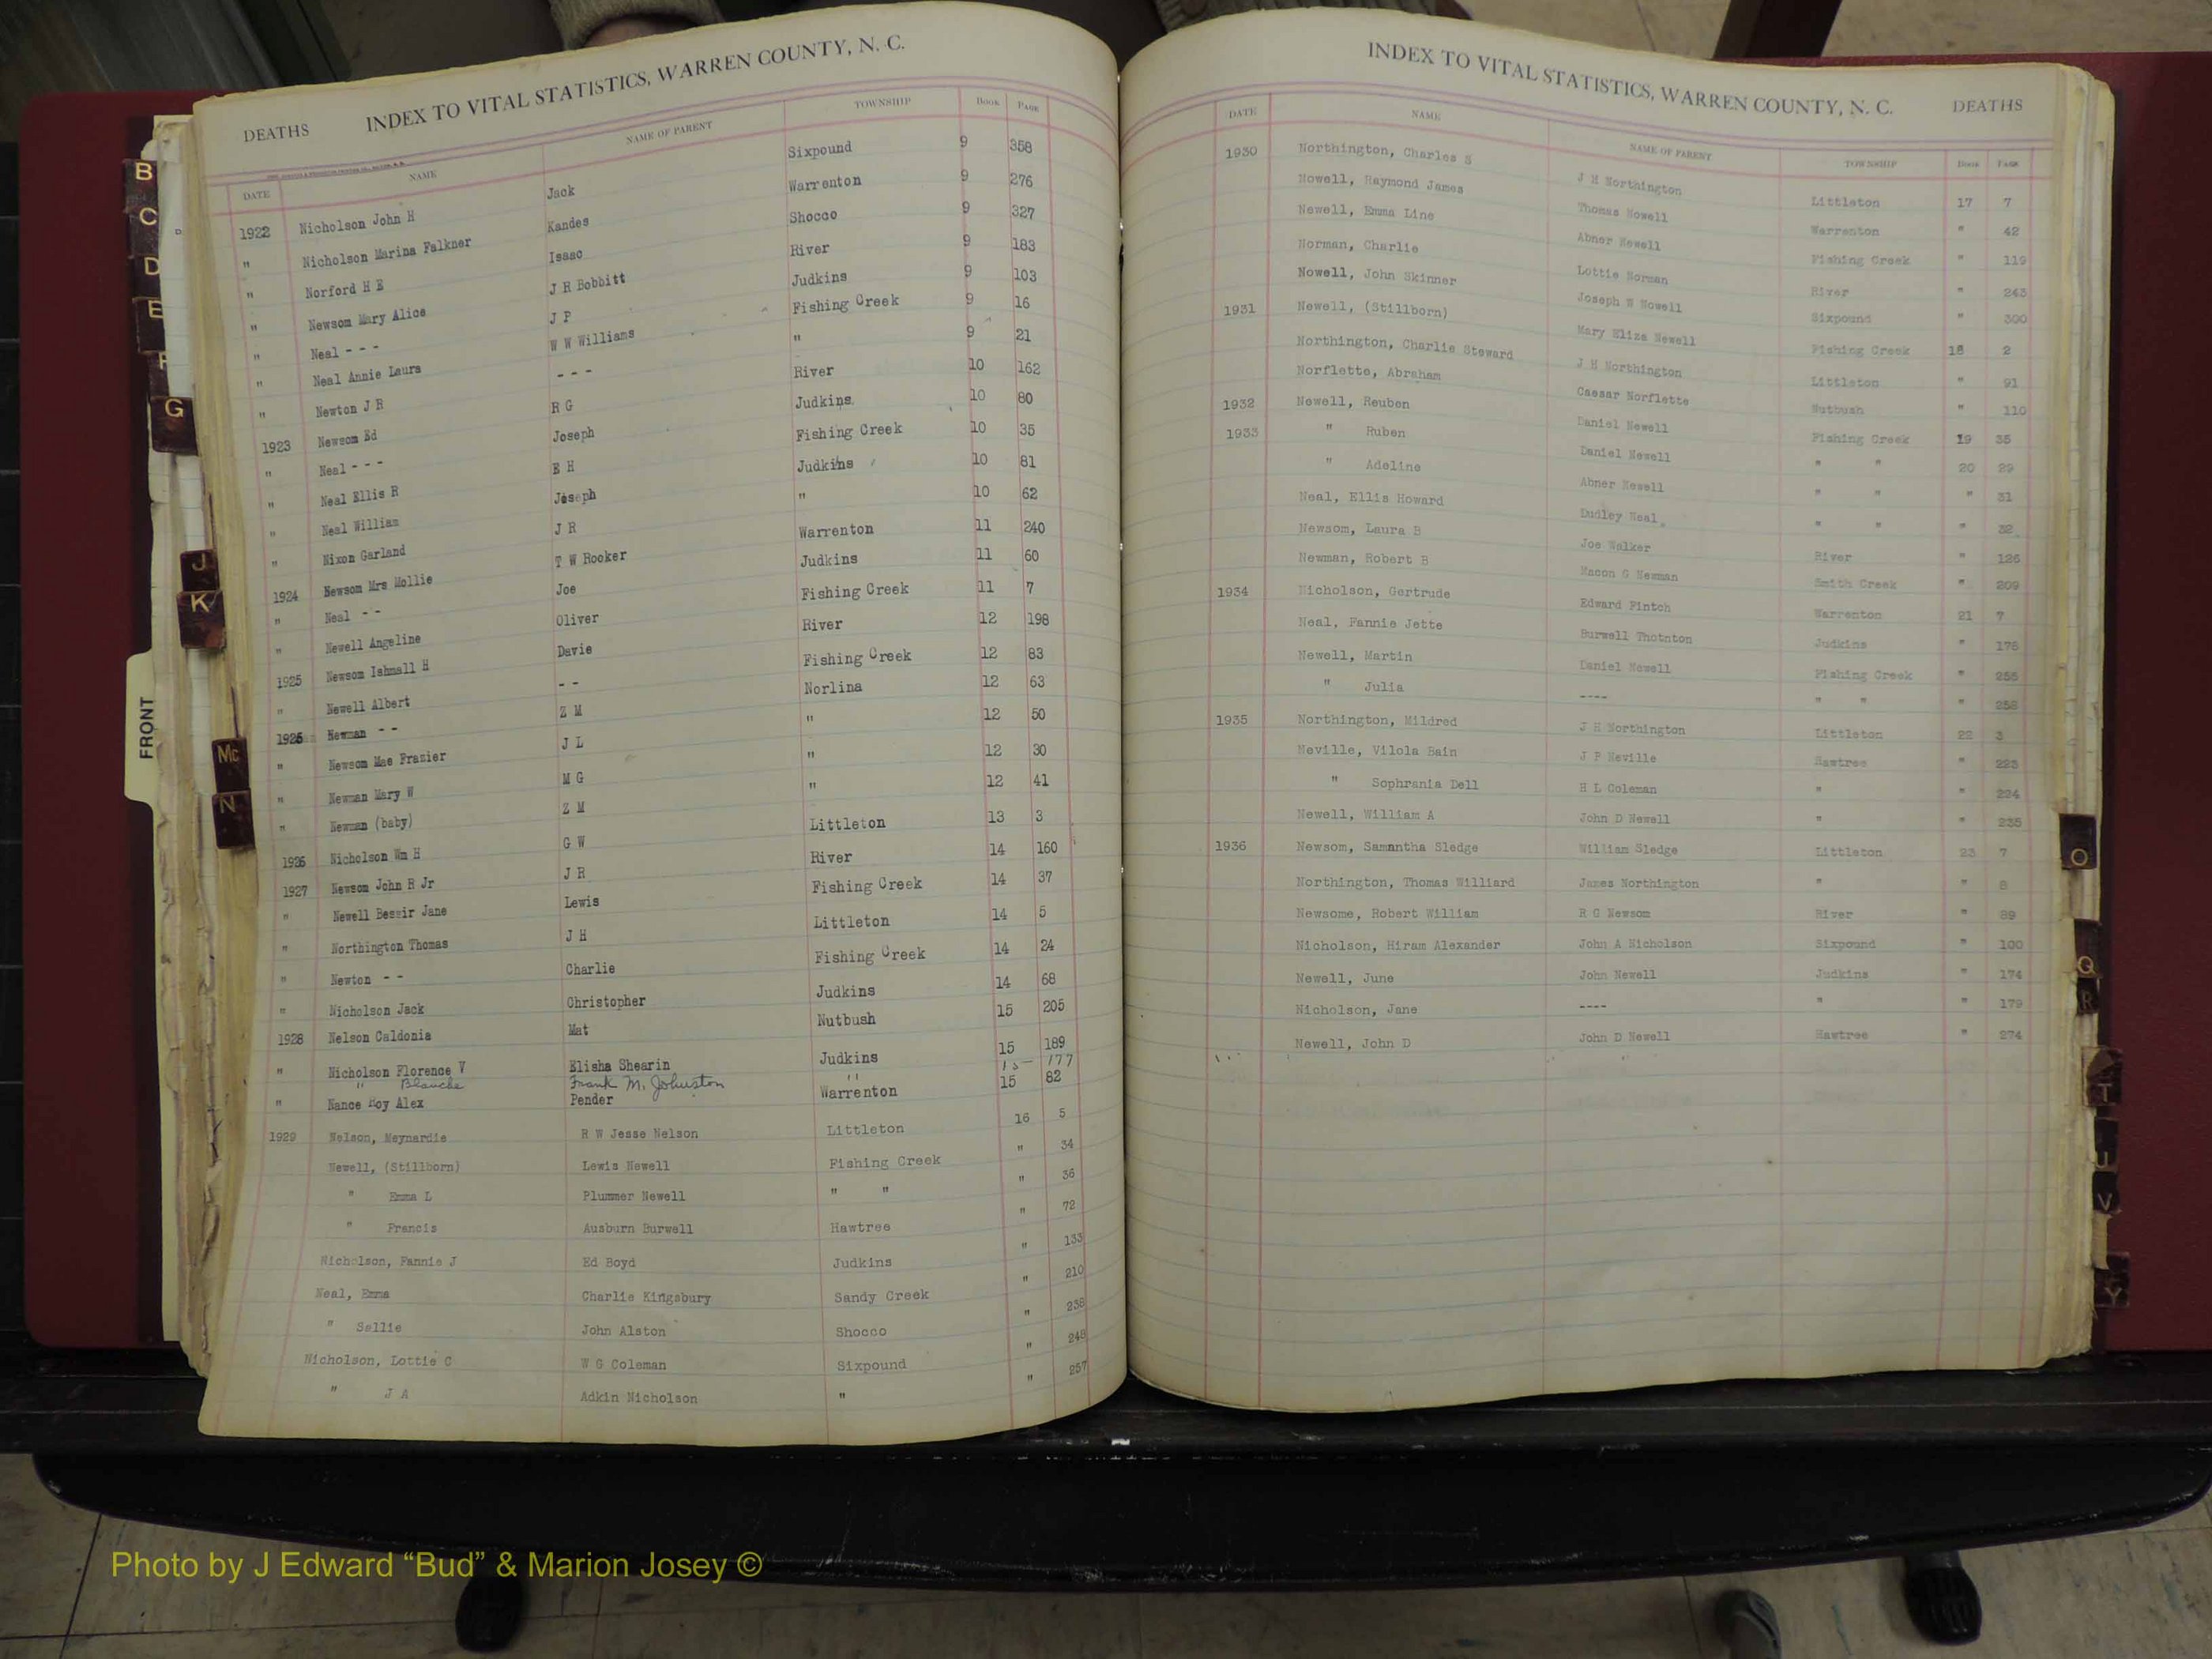 DEATHS INDEX TO VITAL STATISTICS, WARREN COUNTY, N. C.
DATE NAME NAME OF PARENT TOWNSHIP BOOK PAGE
1922 Nicholson John H Jack Sixpound 9 358
" Nicholson Marina Falkner Kandes Warrenton 9 276
" Norford H E Isaac Shocco 9 327
" Newsom Mary Alice J R Bobbitt River 9 183
" Neal - - - J P Judkins 9 103
" Neal Annie Laura W W Williams Fishing Creek 9 16
" Newton J R - - - " 9 21
1923 Newsom Ed R G River 10 162
" Neal - - - Joseph Judkins 10 80
" Neal Ellis R E H Fishing Creek 10 35
" Neal William Joseph Judkins 10 81
" Nixon Garland J R " 10 62
1924 Newsom Mrs Mollie T W Rooker Warrenton 11 240
" Neal - - Joe Judkins 11 60
" Newell Angeline Oliver Fishing Creek 11 7
1925 Newsom Ishmall H Davie River 12 198
" Newell Albert - - Fishing Creek 12 83
1925 Newman - - Z M Norlina 12 63
" Newsom Mae Frazier J L " 12 50
" Newman Mary W M G " 12 30
" Newman (baby) Z M " 12 41
1926 Nicholson Wm H G W Littleton 13 3
1927 Newsom John R Jr J R River 14 160
" Newell Bessir Jane Lewis Fishing Creek 14 37
" Northington Thomas J H Littleton 14 5
" Newton - - Charlie Fishing Creek 14 24
" Nicholson Jack Christopher Judkins 14 68
1928 Nelson Caldonia Mat Nutbush 15 205
" Nicholson Florence V Elisha Shearin Judkins 15 189
" Blanche Frank M. Johnston " 15 177
" Nance Roy Alex Pender Warrenton 15 82
1929 Nelson, Meynardie R W Jesse Nelson Littleton 16 5
Newell, (Stillborn) Lewis Newell Fishing Creek " 34
" Emma L Plummer Newell " " " 36
" Francis Ausburn Burwell Hawtree " 72
Nicholson, Fannie J Ed Boyd Judkins " 133
Neal, Emma Charlie Kingsbury Sandy Creek " 210
" Sallie John Alston Shocco " 238
Nicholson, Lottie C W G Coleman Sixpound " 248
" J A Adkin Nicholson " " 257
INDEX TO VITAL STATISTICS, WARREN COUNTY, N. C. DEATHS
DATE NAME NAME OF PARENT TOWNSHIP BOOK PAGE
1930 Northington, Charles S J H Northington Littleton 17 7
Nowell, Raymond James Thomas Nowell Warrenton " 42
Newell, Emma Line Abner Newell Fishing Creek " 119
Norman, Charlie Lottie Norman River " 243
Nowell, John Skinner Joseph W Nowell Sixpound " 300
1931 Newell, (Stillborn) Mary Eliza Newell Fishing Creek 18 2
Northington, Charlie Steward J H Northington Littleton " 91
Norflette, Abraham Caesar Norflette Nutbush " 110
1932 Newell, Reuben Daniel Newell Fishing Creek 19 35
1933 " Ruben Daniel Newell " " 20 29
" Adeline Abner Newell " " " 31
Neal, Ellis Howard Dudley Neal " " " 32
Newsom, Laura B Joe Walker River " 126
Newman, Robert B Macon G Newman Smith Creek " 209
1934 Nicholson, Gertrude Edward Fintch Warrenton 21 7
Neal, Fannie Jette Burwell Thotnton Judkins " 178
Newell, Martin Daniel Newell Fishing Creek " 255
" Julia ---- " " " 258
1935 Northington, Mildred J H Northington Littleton 22 3
Neville, Vilola Bain J P Neville Hawtree " 223
" Sophrania Dell H L Coleman " " 224
Newell, William A John D Newell " " 235
1936 Newsom, Samantha Sledge William Sledge Littleton 23 7
Northington, Thomas Williard James Northington " " 8
Newsome, Robert William R G Newsom River " 89
Nicholson, Hiram Alexander John A Nicholson Sixpound " 100
Newell, June John Newell Judkins " 174
Nicholson, Jane ---- " " 179
Newell, John D John D Newell Hawtree " 274
B
C
D
E
F
G
J
K
FRONT
Mc
N
O
Q
R
T
U
V
Y
Photo by J Edward “Bud” & Marion Josey ©